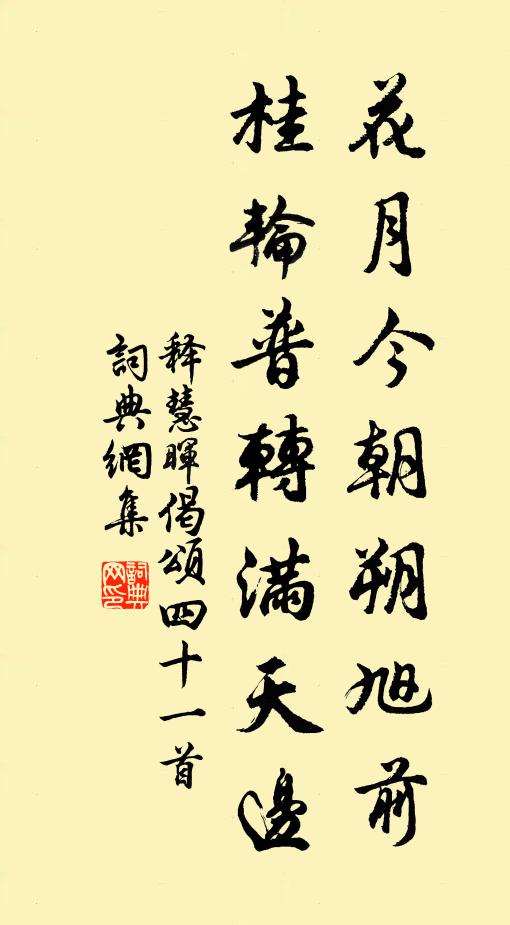 花月今朝朔旭前
桂輪普轉滿天邊
釋慧暉偈頌四十一首
詞典網集
詞典网印